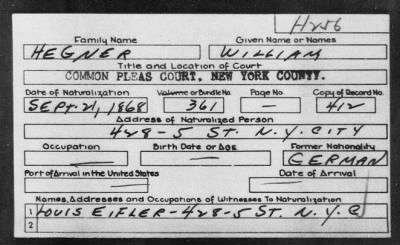 H256
Family Name Given Name or Names
HEGNER WILLIAM
Title and Location of Court
COMMON PLEAS COURT, NEW YORK COUNTY.
Date of Naturalization Volume or Bundle No. Page No. Copy of Record No.
SEPT. 21, 1868 361 — 412
Address of Naturalized Person
428-5 ST. N.Y. CITY
Occupation Birth Date or Age Former Nationality
— — GERMAN
Port of Arrival in the United States Date of Arrival
— —
Names, Addresses and Occupations of Witnesses To Naturalization
1 LOUIS EIFLER-428-5 ST. N.Y.C
2